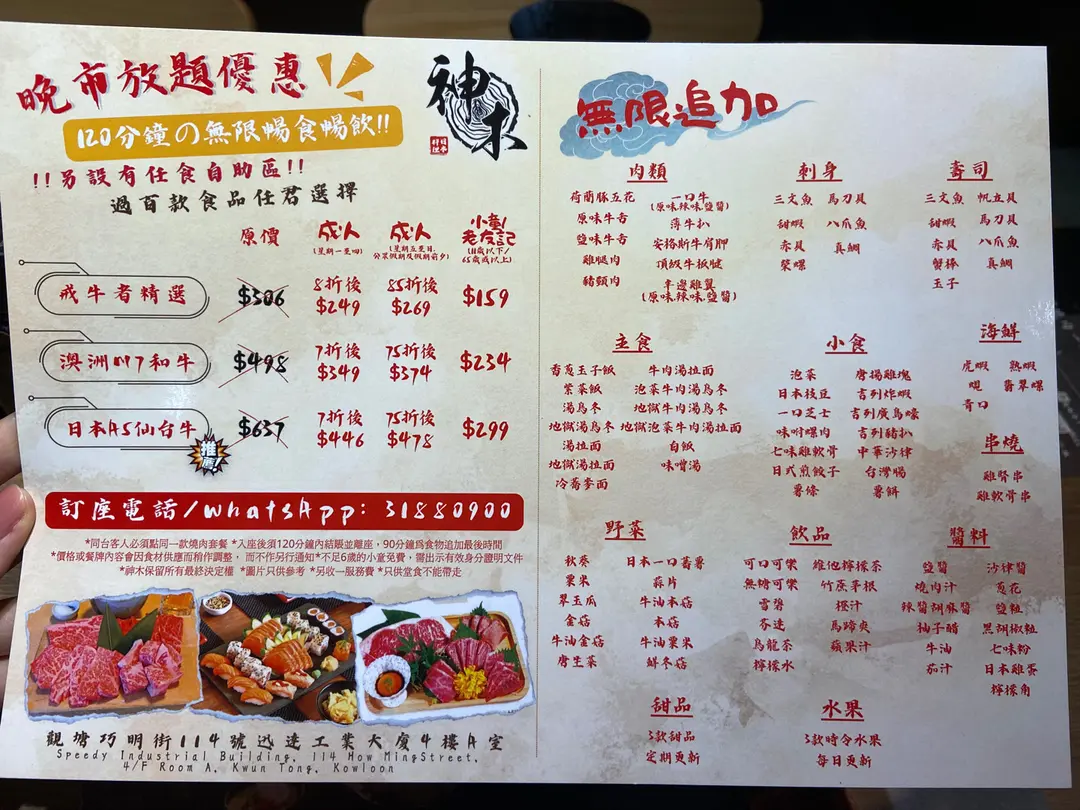 晚市放題優惠
120分鐘の無限暢食暢飲!!
!!另設有任食自助區!!
過百款食品任君選擇
神木
原價
成人
(星期一至四)
成人
(星期五至日,
公眾假期及假期前夕)
小童/
老友記
(11歲以下/
65歲或以上)
戒牛者精選
$306
8折後
$249
85折後
$269
$159
澳洲M7和牛
$498
7折後
$349
75折後
$374
$234
日本A5仙台牛
推薦!
$637
7折後
$446
75折後
$478
$299
訂座電話/whatsApp: 31880900
*同台客人必須點同一款燒肉套餐 *入座後須120分鐘內結賬並離座，90分鐘為食物追加最後時間
*價格或餐牌內容會因食材供應而稍作調整， 而不作另行通知*不足6歲的小童免費，需出示有效身分證明文件
*神木保留所有最終決定權 *圖片只供參考 *另收一服務費 *只供堂食不能帶走
觀塘巧明街114號迅達工業大廈4樓A室
Speedy Industrial Building, 114 How MingStreet,
4/F Room A, Kwun Tong, Kowloon
無限追加
肉類
荷蘭豚五花
原味牛舌
鹽味牛舌
雞腿肉
豬頸肉
一口牛
(原味,辣味,鹽醬)
薄牛扒
安格斯牛肩胛
頂級牛板腱
半邊雞翼
(原味,辣味,鹽醬)
刺身
三文魚 馬刀貝
甜蝦 八爪魚
赤貝 真鯛
螺
壽司
三文魚 帆立貝
甜蝦 馬刀貝
赤貝 八爪魚
蟹棒 真鯛
玉子
主食
香蔥玉子飯 牛肉湯拉面
紫菜飯 泡菜牛肉湯烏冬
湯烏冬 地獄牛肉湯烏冬
地獄湯烏冬 地獄泡菜牛肉湯拉面
湯拉面 白飯
地獄湯拉面 味噌湯
冷蕎麥面
小食
泡菜 唐揚雞塊
日本枝豆 吉列炸蝦
一口芝士 吉列廣島蠔
味付螺肉 吉列豬扒
七味雞軟骨 中華沙律
日式煎餃子 台灣腸
薯條 薯餅
海鮮
虎蝦 熟蝦
蜆 翡翠螺
青口
串燒
雞腎串
雞軟骨串
野菜
秋葵 日本一口蕃薯
粟米 蒜片
翠玉瓜 牛油本菇
金菇 本菇
牛油金菇 牛油粟米
唐生菜 鮮冬菇
飲品
可口可樂 維他檸檬茶
無糖可樂 竹蔗茅根
雪碧 橙汁
芬達 馬蹄爽
烏龍茶 蘋果汁
檸檬水
醬料
鹽醬 沙律醬
燒肉汁 蔥花
辣醬胡麻醬 鹽粒
柚子醋 黑胡椒粒
牛油 七味粉
茄汁 日本雞蛋
檸檬角
甜品
3款甜品
定期更新
水果
3款時令水果
每日更新